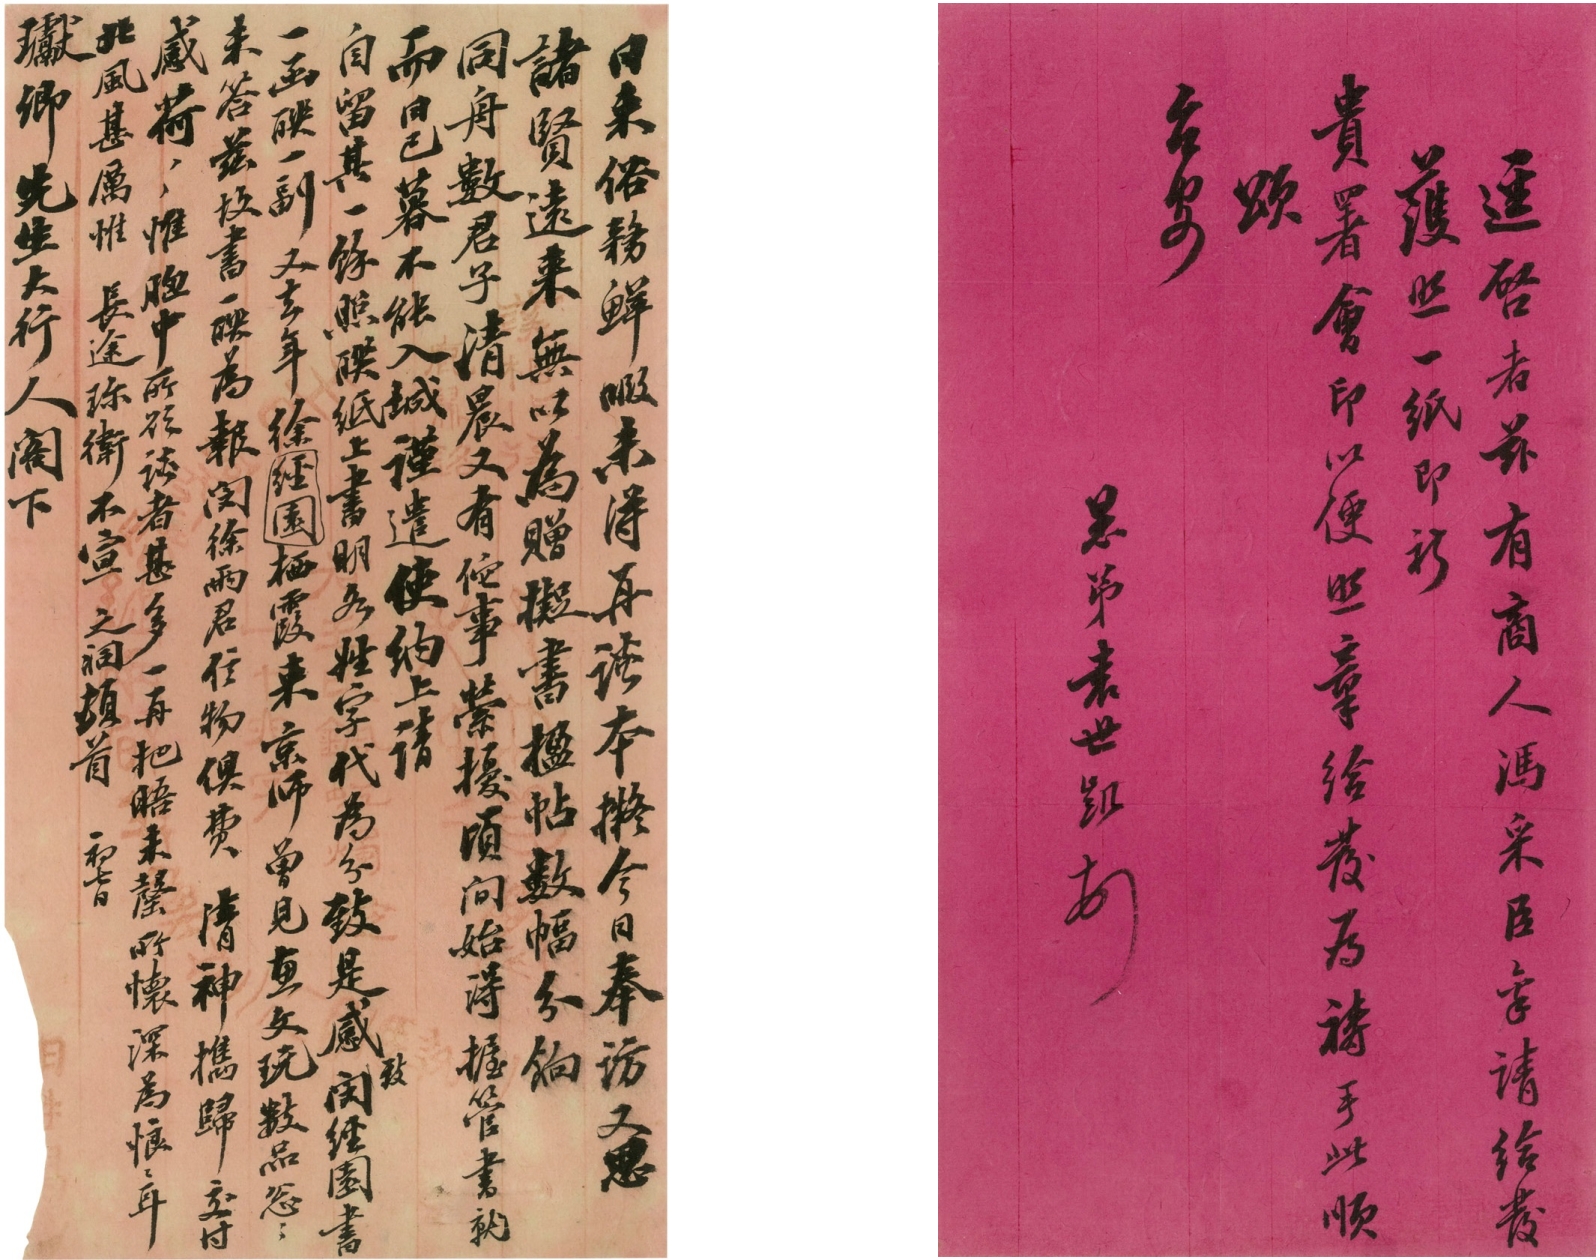 日来俗務鮮暇未得再談本擬今日奉訪又思
諸賢遠来無以為贈擬書楹帖數幅分餉
同舟數君子清晨又有佗事縈擾頃间始得握管書就
而日已暮不能入城謹遣使納上請
自留其一餘照聯纸上書明各姓字代為分致是感 致闵經園書
一函聯一副又去年徐經園栖霞来京师曾見惠文玩數品忩〻
未答兹故書一聯為報闵徐兩君信物俱費 清神携歸交付
感荷〻惟胸中所欲談者甚多一再把晤未罄所懷深為悵〻耳
北風甚厲惟 長途珍衛不宣 之洞頓首 初七日
瓛卿先生大行人阁下
逕啓者兹有商人馮采臣拿請給發
護照一纸即祈
貴署會印以便照章給發為禱手此順
頌
台安
愚弟袁世凱